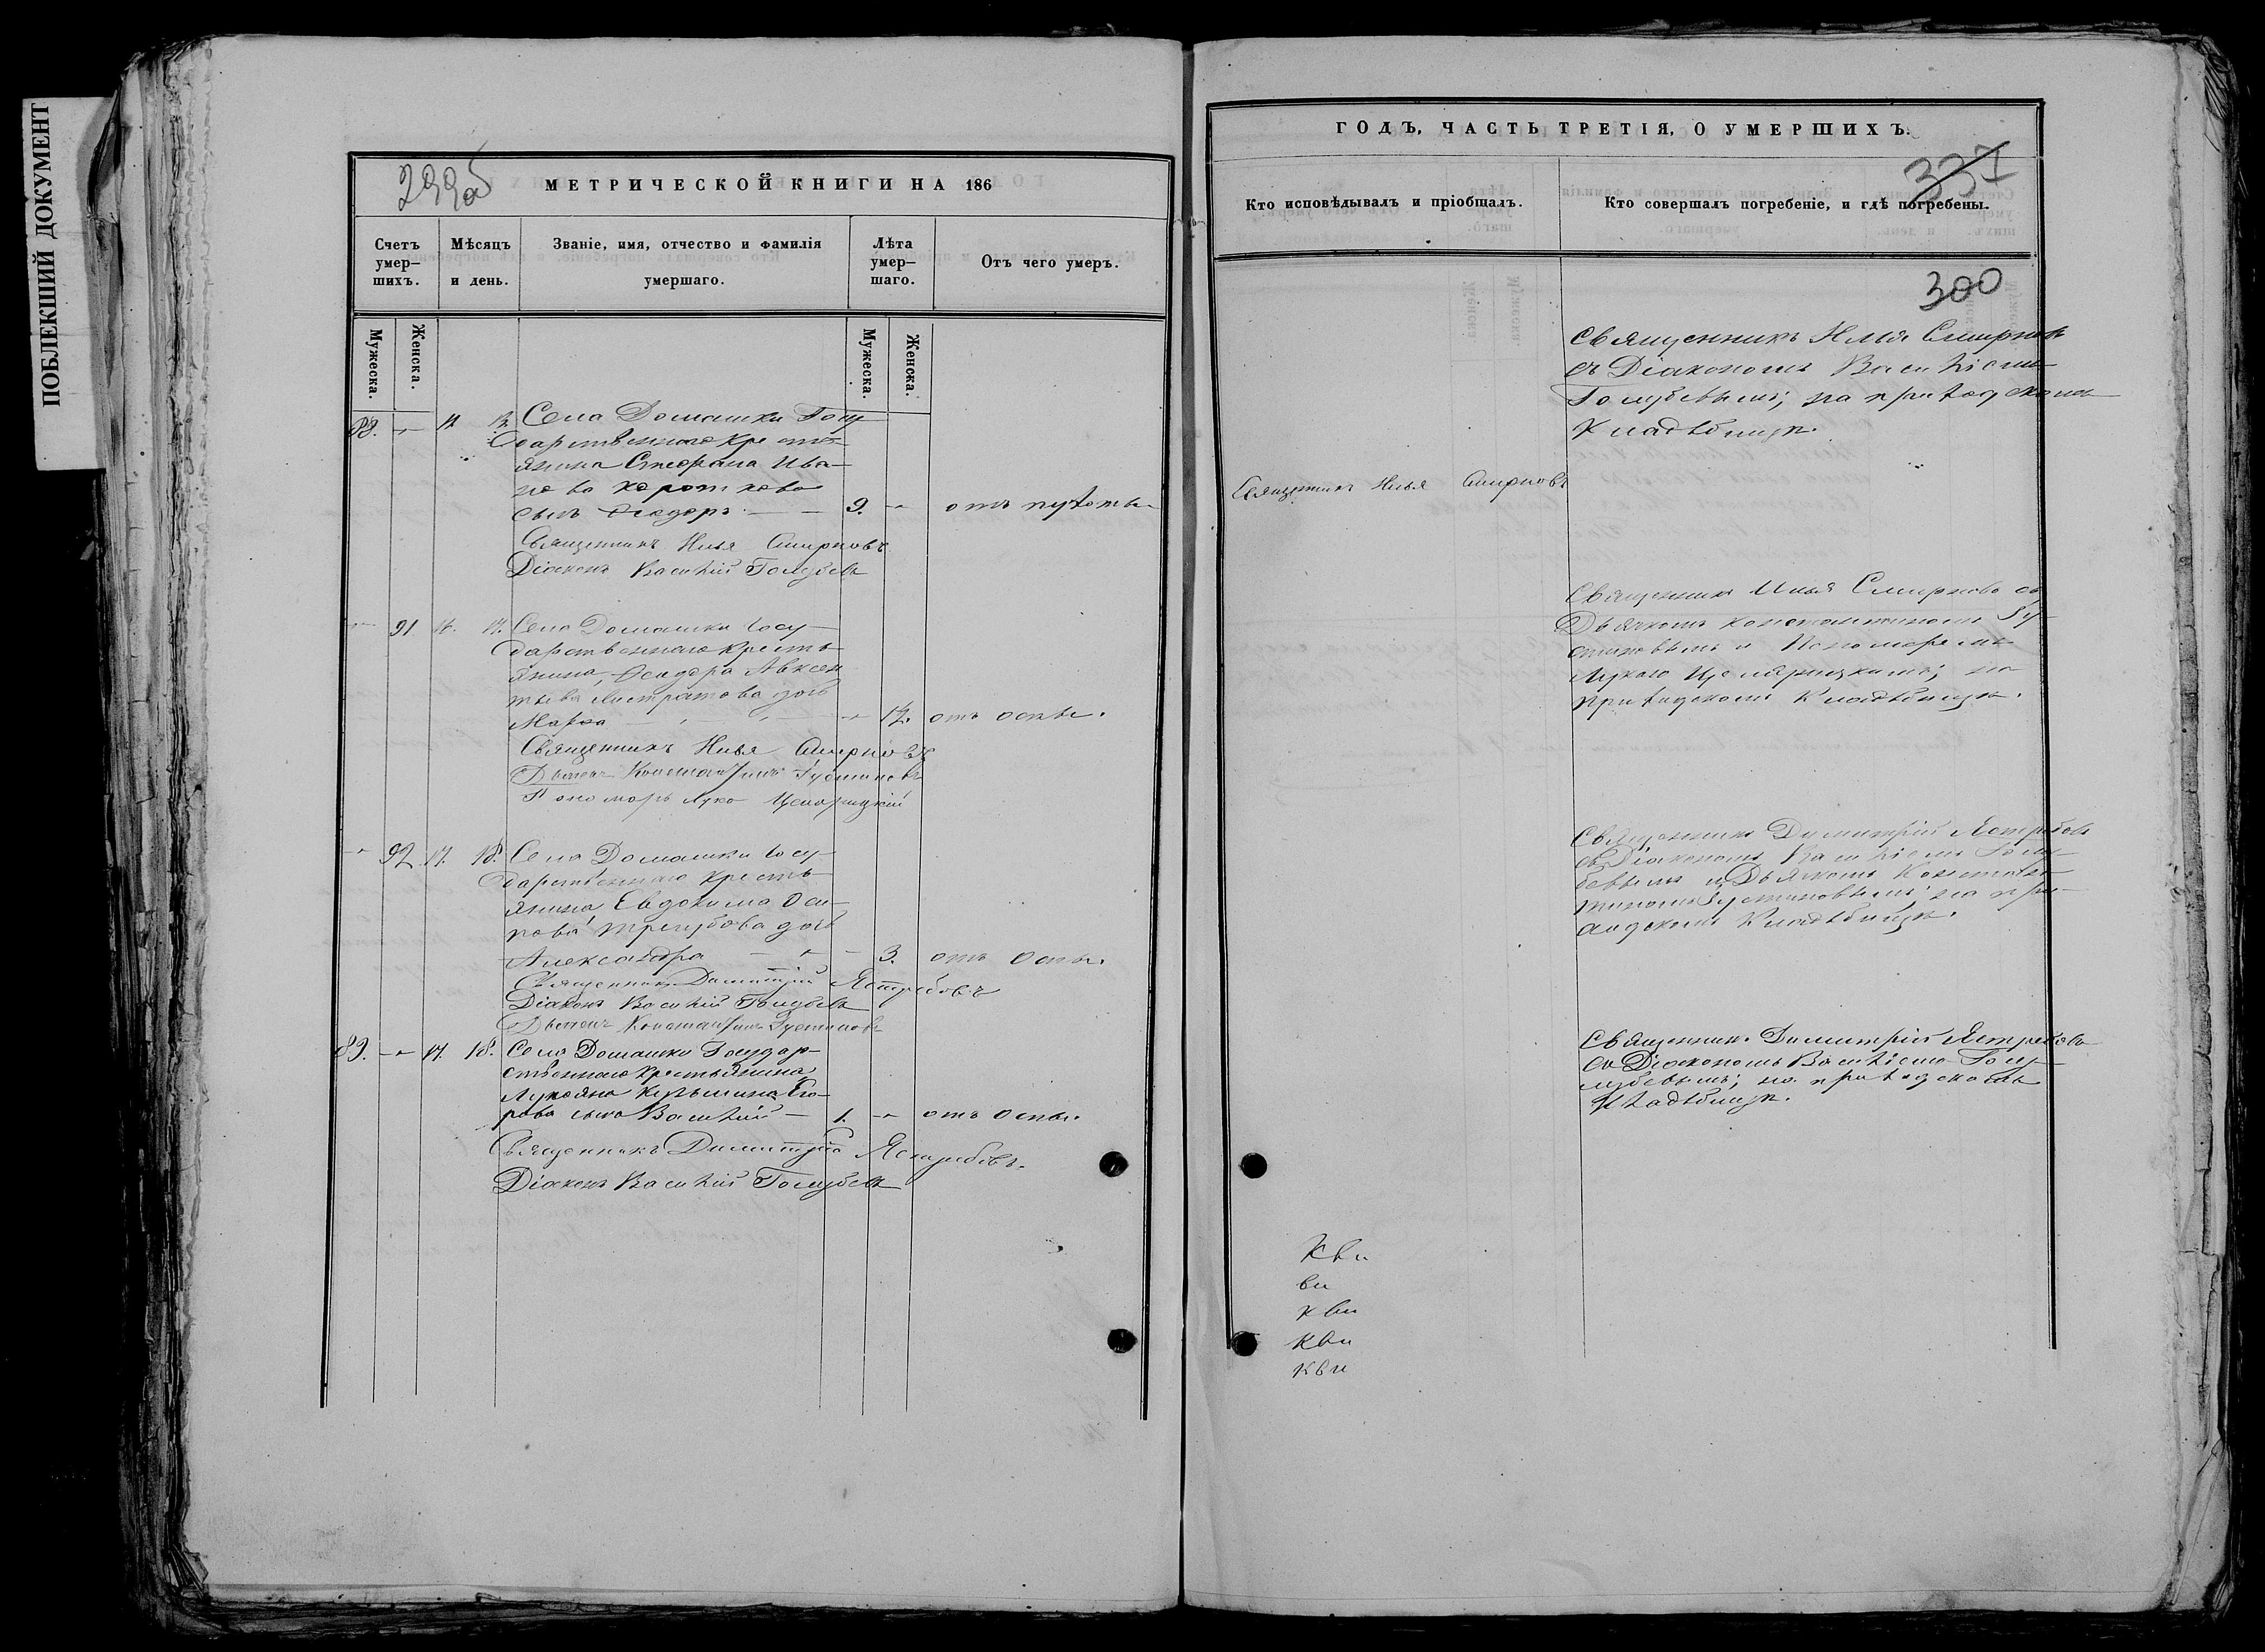 ПОБЛЕКШИЙ ДОКУМЕНТ
299об
МЕТРИЧЕСКОЙ КНИГИ НА 186
Счетъ умер-шихъ.
Мѣсяцъ и день.
Званіе, имя, отчество и фамилія умершаго.
Лѣта умер-шаго.
Отъ чего умеръ.
Мужеска.
Женска.
Мужеска.
Женска.
88. - Села Домашки Госу
дарственнаго кресть-
янина Стефана Ива-
нова Короткова
сынъ Ѳеодоръ — — 9. - отъ
Священникъ Илья Смирновъ
Діаконъ Василій Голубевъ
- 91 16. 17. Села Домашки Госу-
дарственнаго кресть-
янина, Ѳеодора Авксен
тьева Листратова дочь
Марѳа - 12. отъ оспы.
Священникъ Илья Смирновъ
Дьячекъ Константинъ Густиновъ
Пономарь Лука
- 92 17. 18. Села Домашки Госу-
дарственнаго кресть-
янина Евдокима Оси-
пова Трегубова дочь
Александра - 3. отъ оспы.
Священникъ Димитрій Ястребовъ
Діаконъ Василій Голубевъ
Дьячекъ Константинъ Густиновъ
89. - 17. 18. Села Домашки Государ-
ственнаго крестьянина
Лукояна Кузьмина Его-
рова сынъ Василій — 1. - отъ оспы.
Священникъ Димитрій Ястребовъ.
Діаконъ Василій Голубевъ
ГОДЪ, ЧАСТЬ ТРЕТІЯ, О УМЕРШИХЪ.
337
Кто исповѣдывалъ и пріобщалъ.
Кто совершалъ погребеніе, и гдѣ погребены.
300
Священникъ Илья Смирновъ
съ Діакономъ Василіемъ
Голубевымъ; на приходскомъ
Кладбищѣ.
Священникъ Илья Смирновъ
Священникъ Илья Смирновъ съ
Дьячкомъ Константиномъ Гу-
стиновымъ и Пономаремъ
Лукою на
приходскомъ Кладбищѣ.
Священникъ Димитрій Ястребовъ
съ Діакономъ Василіемъ Голу-
бевымъ и Дьячкомъ Констан-
тиномъ Густиновымъ; на при-
ходскомъ Кладбищѣ.
Священникъ Димитрій Ястребовъ
съ Діакономъ Василіемъ Голу-
бевымъ; на приходскомъ
Кладбищѣ.
Кви
ви
кви
Кви
кви